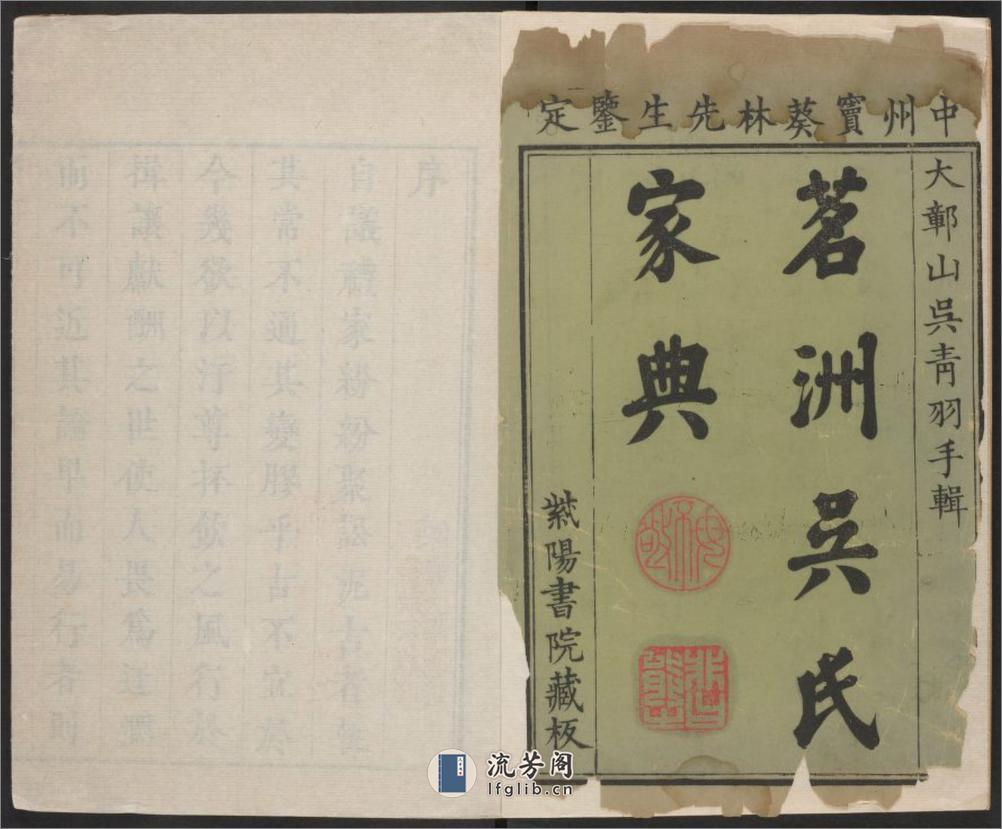 中州竇葵林先生鑒定
大鄣山吳青羽手輯
茗洲吳氏
家典
紫陽書院藏板
序
自議禮家紛紛聚訟泥古者
其常不通其變膠乎古不宜於
今幾欲以汙尊抔飲之風行於
揖讓獻酬之世使人畏爲迂
而不可近其論卑而易行者則
流芳阁
lfglib.cn